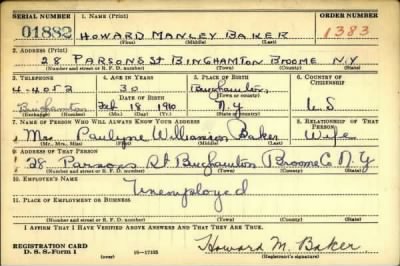 SERIAL NUMBER 1. NAME (Print) ORDER NUMBER
01882 HOWARD MANLEY BAKER 1383
(First) (Middle) (Last)
2. ADDRESS (Print)
28 PARSONS St BINGHAMTON BROOME N.Y
(Number and street or R. F. D. number) (Town) (County) (State)
3. TELEPHONE 4. AGE IN YEARS 5. PLACE OF BIRTH 6. COUNTRY OF CITIZENSHIP
4-4053 30 Binghamton
DATE OF BIRTH (Town or county)
Binghamton Feb 18 1910 N.Y U.S
(Exchange) (Number) (Mo.) (Day) (Yr.) (State or country)
7. NAME OF PERSON WHO WILL ALWAYS KNOW YOUR ADDRESS 8. RELATIONSHIP OF THAT PERSON
Mrs Paulyne Williamson Baker Wife
(Mr., Mrs., Miss) (First) (Middle) (Last)
9. ADDRESS OF THAT PERSON
28 Parsons St Binghamton Broome Co N.Y
(Number and street or R. F. D. number) (Town) (County) (State)
10. EMPLOYER'S NAME
Unemployed
11. PLACE OF EMPLOYMENT OR BUSINESS
(Number and street or R. F. D. number) (Town) (County) (State)
I AFFIRM THAT I HAVE VERIFIED ABOVE ANSWERS AND THAT THEY ARE TRUE.
REGISTRATION CARD
D. S. S. Form 1 16-17105 Howard M. Baker
(Registrant's signature)